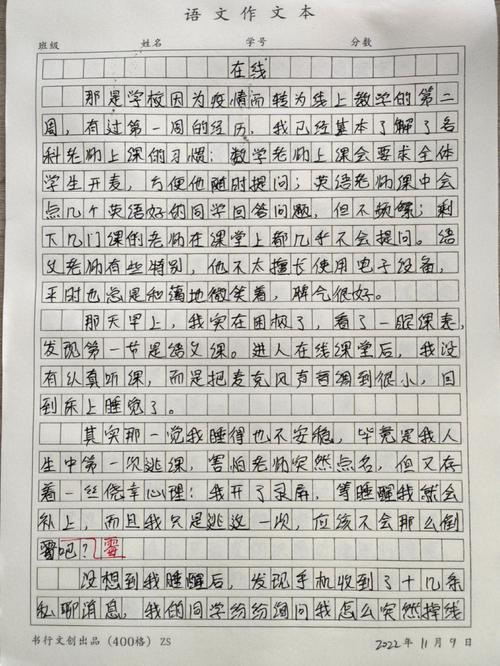 语文作文本
班级 姓名 学号 分数
在线
那是学校因为疫情而转为线上教学的第二
周，有过第一周的经历，我已经基本了解了各
科老师上课的习惯：数学老师上课会要求全体
学生开麦，方便他随时提问；英语老师课中会
点几个英语好的同学回答问题，但不频繁；剩
下几门课的老师在课堂上都几乎不会提问。语
文老师有些特别，他不太擅长使用电子设备，
平时也总是和蔼地微笑着，脾气很好。
那天早上，我实在困极了，看了一眼课表，
发现第一节是语文课。进入在线课堂后，我没
有认真听课，而是把麦克风和音调到很小，回
到床上睡觉了。
其实那一觉我睡得也不安稳，毕竟是我人
生中第一次逃课，害怕老师突然点名，但又存
着一丝侥幸心理：我开了录屏，等睡醒我就会
补上，而且我只是逃这一次，应该不会那么倒
霉吧？霉
没想到我睡醒后，发现手机收到了十几条
私聊消息，我的同学纷纷询问我怎么突然掉线
书行文创出品（400格）ZS 2022年11月9日